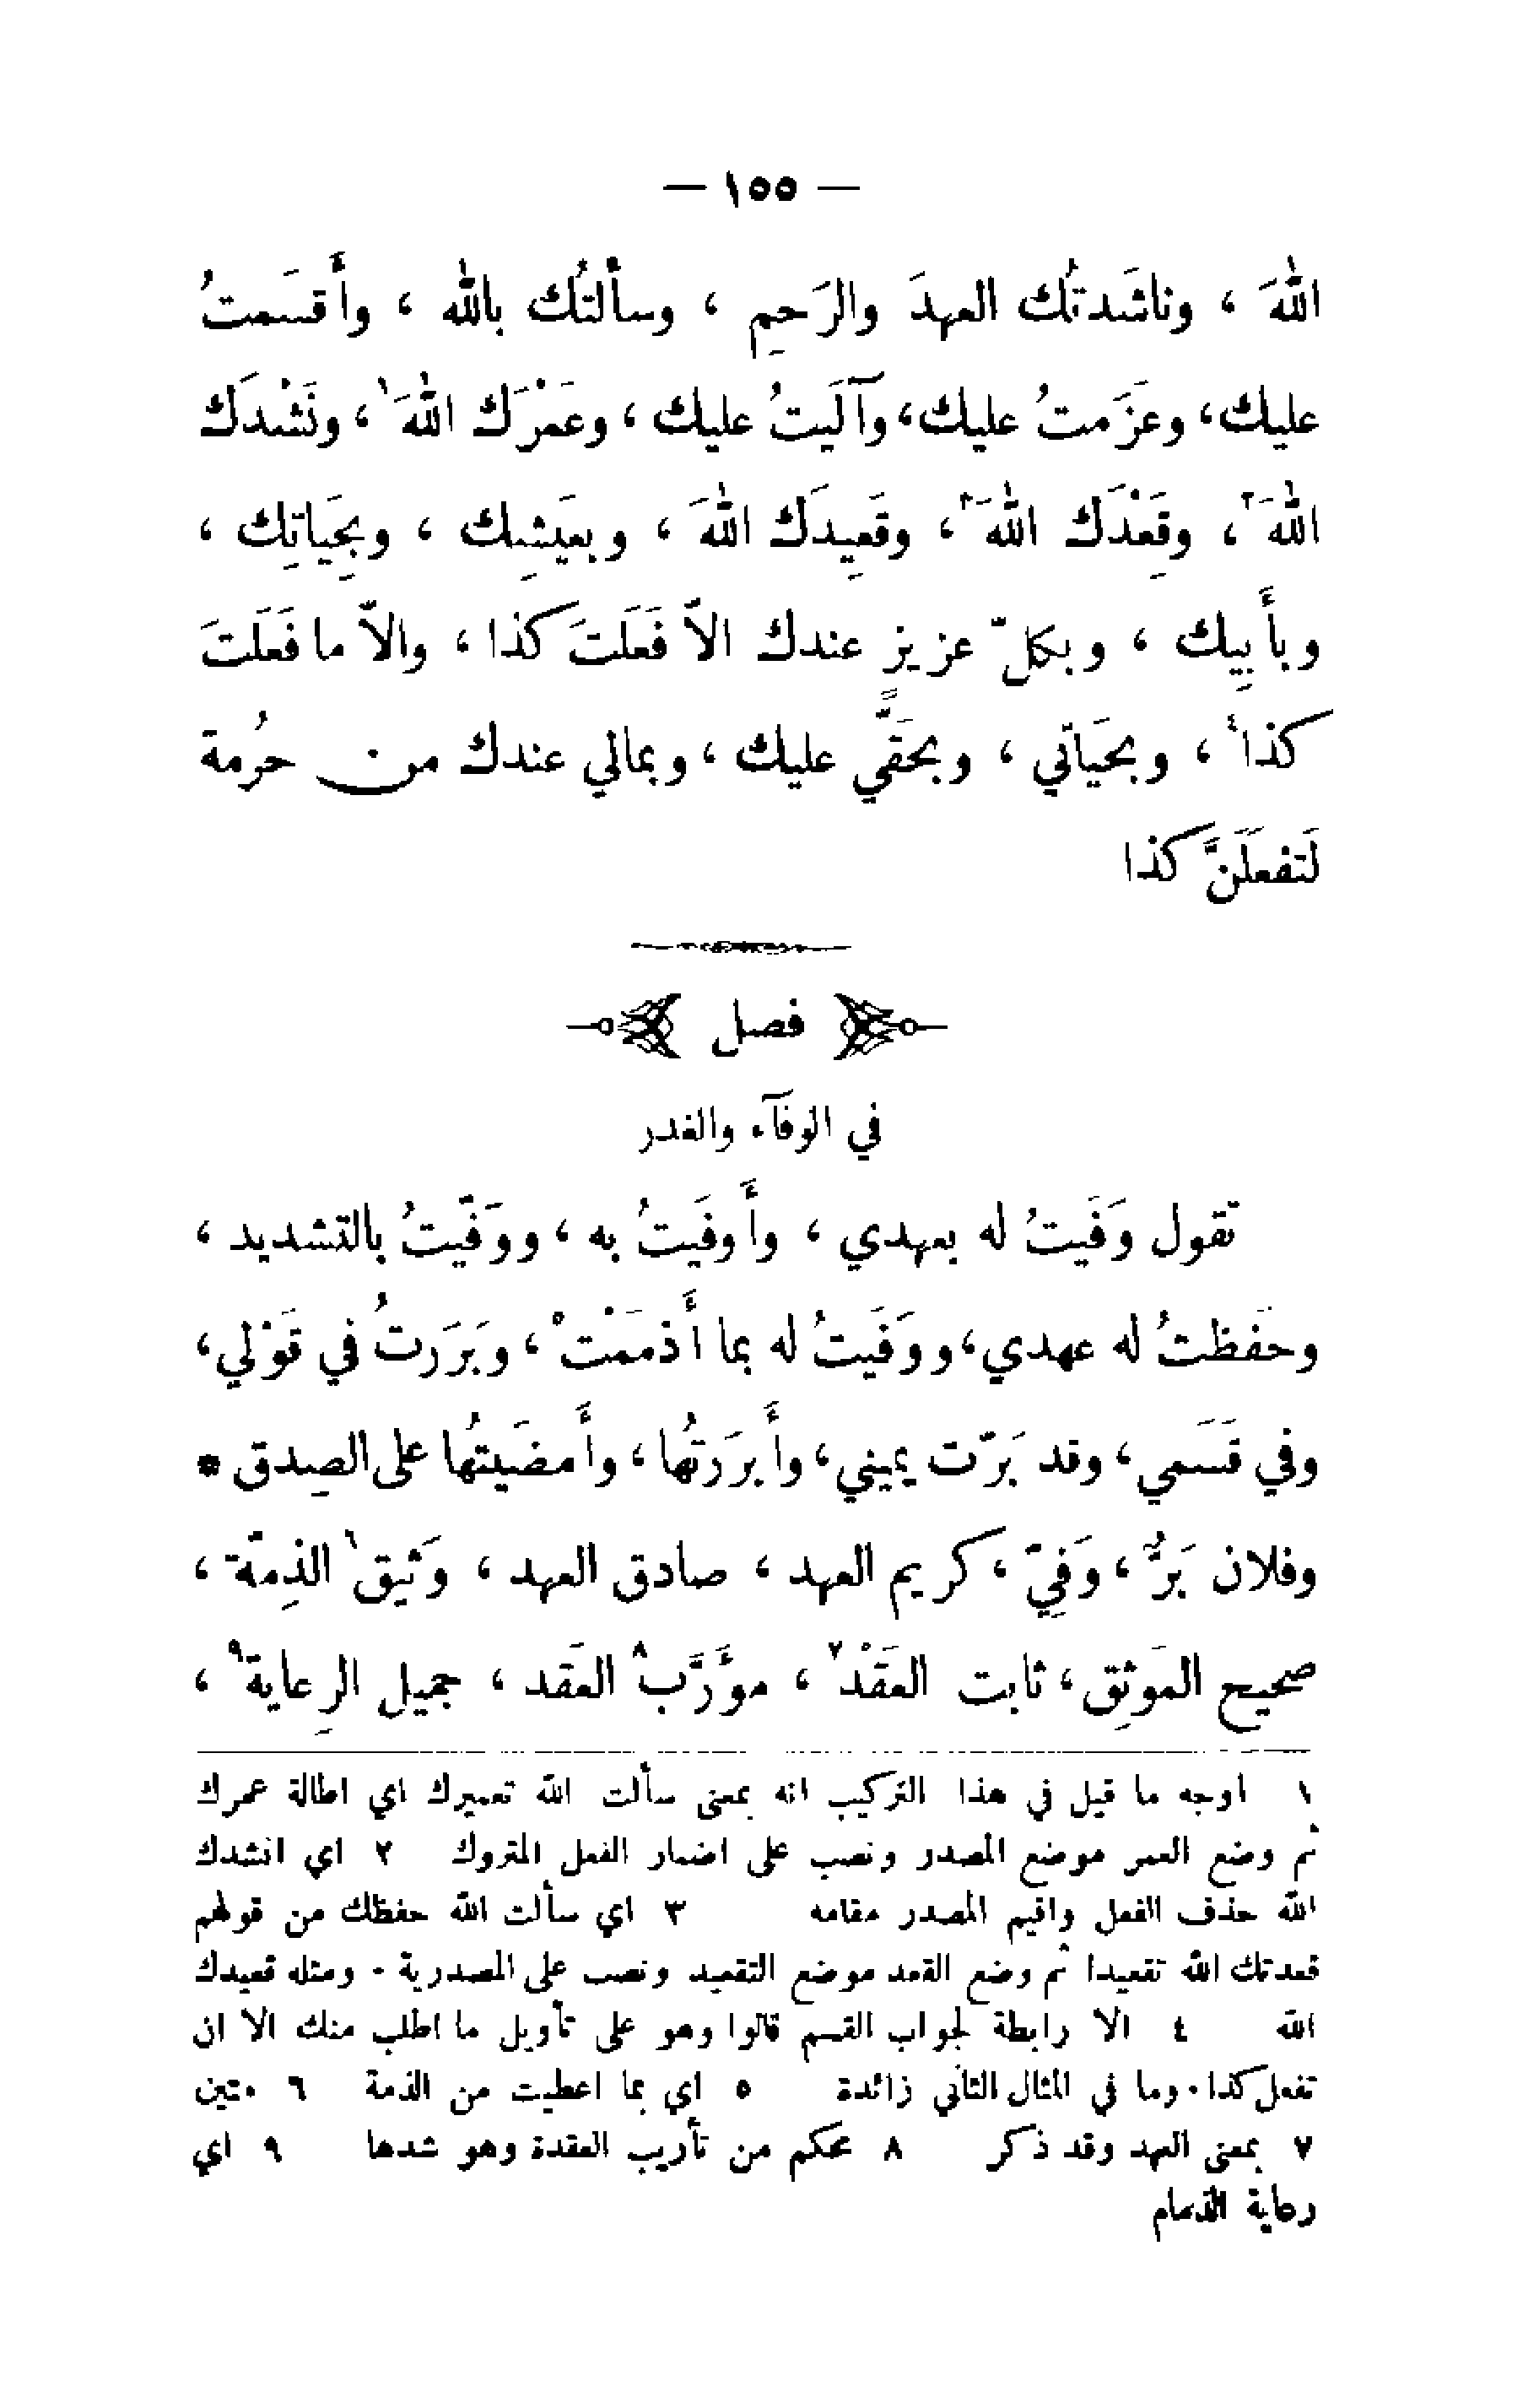 — ١٥٥ —
اللهَ ، وناشَدتُك العهدَ والرَحِم ، وسألتُك بالله ، وأَقسَمتُ
عليك، وعزَمتُ عليك، وآلَيتُ عليك ، وعَمْرَك اللهَ١، ونَشْدَك
اللهَ٢، وقِعْدَك اللهَ٣، وقَعِيدَك اللهَ ، وبعَيشِك ، وبحَياتِك ،
وبأَبِيك ، وبكلّ عزيزٍ عندك الاّ فَعَلَتَ كذا ، والاّ ما فَعَلَتَ
كذا٤ ، وبحَياتي ، وبحَقّي عليك ، وبمالي عندك من حرُمة
لَتفعلَنَّ كذا
فصل
في الوفآء والغدر
تقول وَفَيتُ له بعهدي ، وأَوفَيتُ به ، ووَفَّيتُ بالتشديد ،
وحَفَظتُ له عهدي، ووَفَيتُ له بما أَذمَمْت٥ ، وبَرَرتُ في قَوْلي،
وفي قَسَمي، وقد بَرّت يميني، وأَبرَرتُها ، وأَمضَيتُها على الصِدق *
وفلان بَرٌّ ، وَفِيّ ، كريم العهد ، صادق العهد ، وَثيق٦ الذِمّة ،
صحيح المَوثِق، ثابت العَقْد٧ ، مؤَرَّب٨ العَقد ، جميل الرِعاية٩ ،
١ اوجه ما قيل في هذا التركيب انه بمعنى سألت الله تعميرك اي اطالة عمرك
ثم وضع العمر موضع المصدر ونصب على اضمار الفعل المتروك ٢ اي انشدك
الله حذف الفعل واقيم المصدر مقامه ٣ اي سألت الله حفظك من قولهم
قعدتك الله تقعيدا ثم وضع القعد موضع التقعيد ونصب على المصدرية . ومثله قعيدك
الله ٤ الا رابطة لجواب القسم قالوا وهو على تأويل ما اطلب منك الا ان
تفعل كذا . وما في المثال الثاني زائدة ٥ اي بما اعطيت من الذمة ٦ متين
٧ بمعنى العهد وقد ذكر ٨ محكم من تأريب العقدة وهو شدها ٩ اي
رعاية الذمام